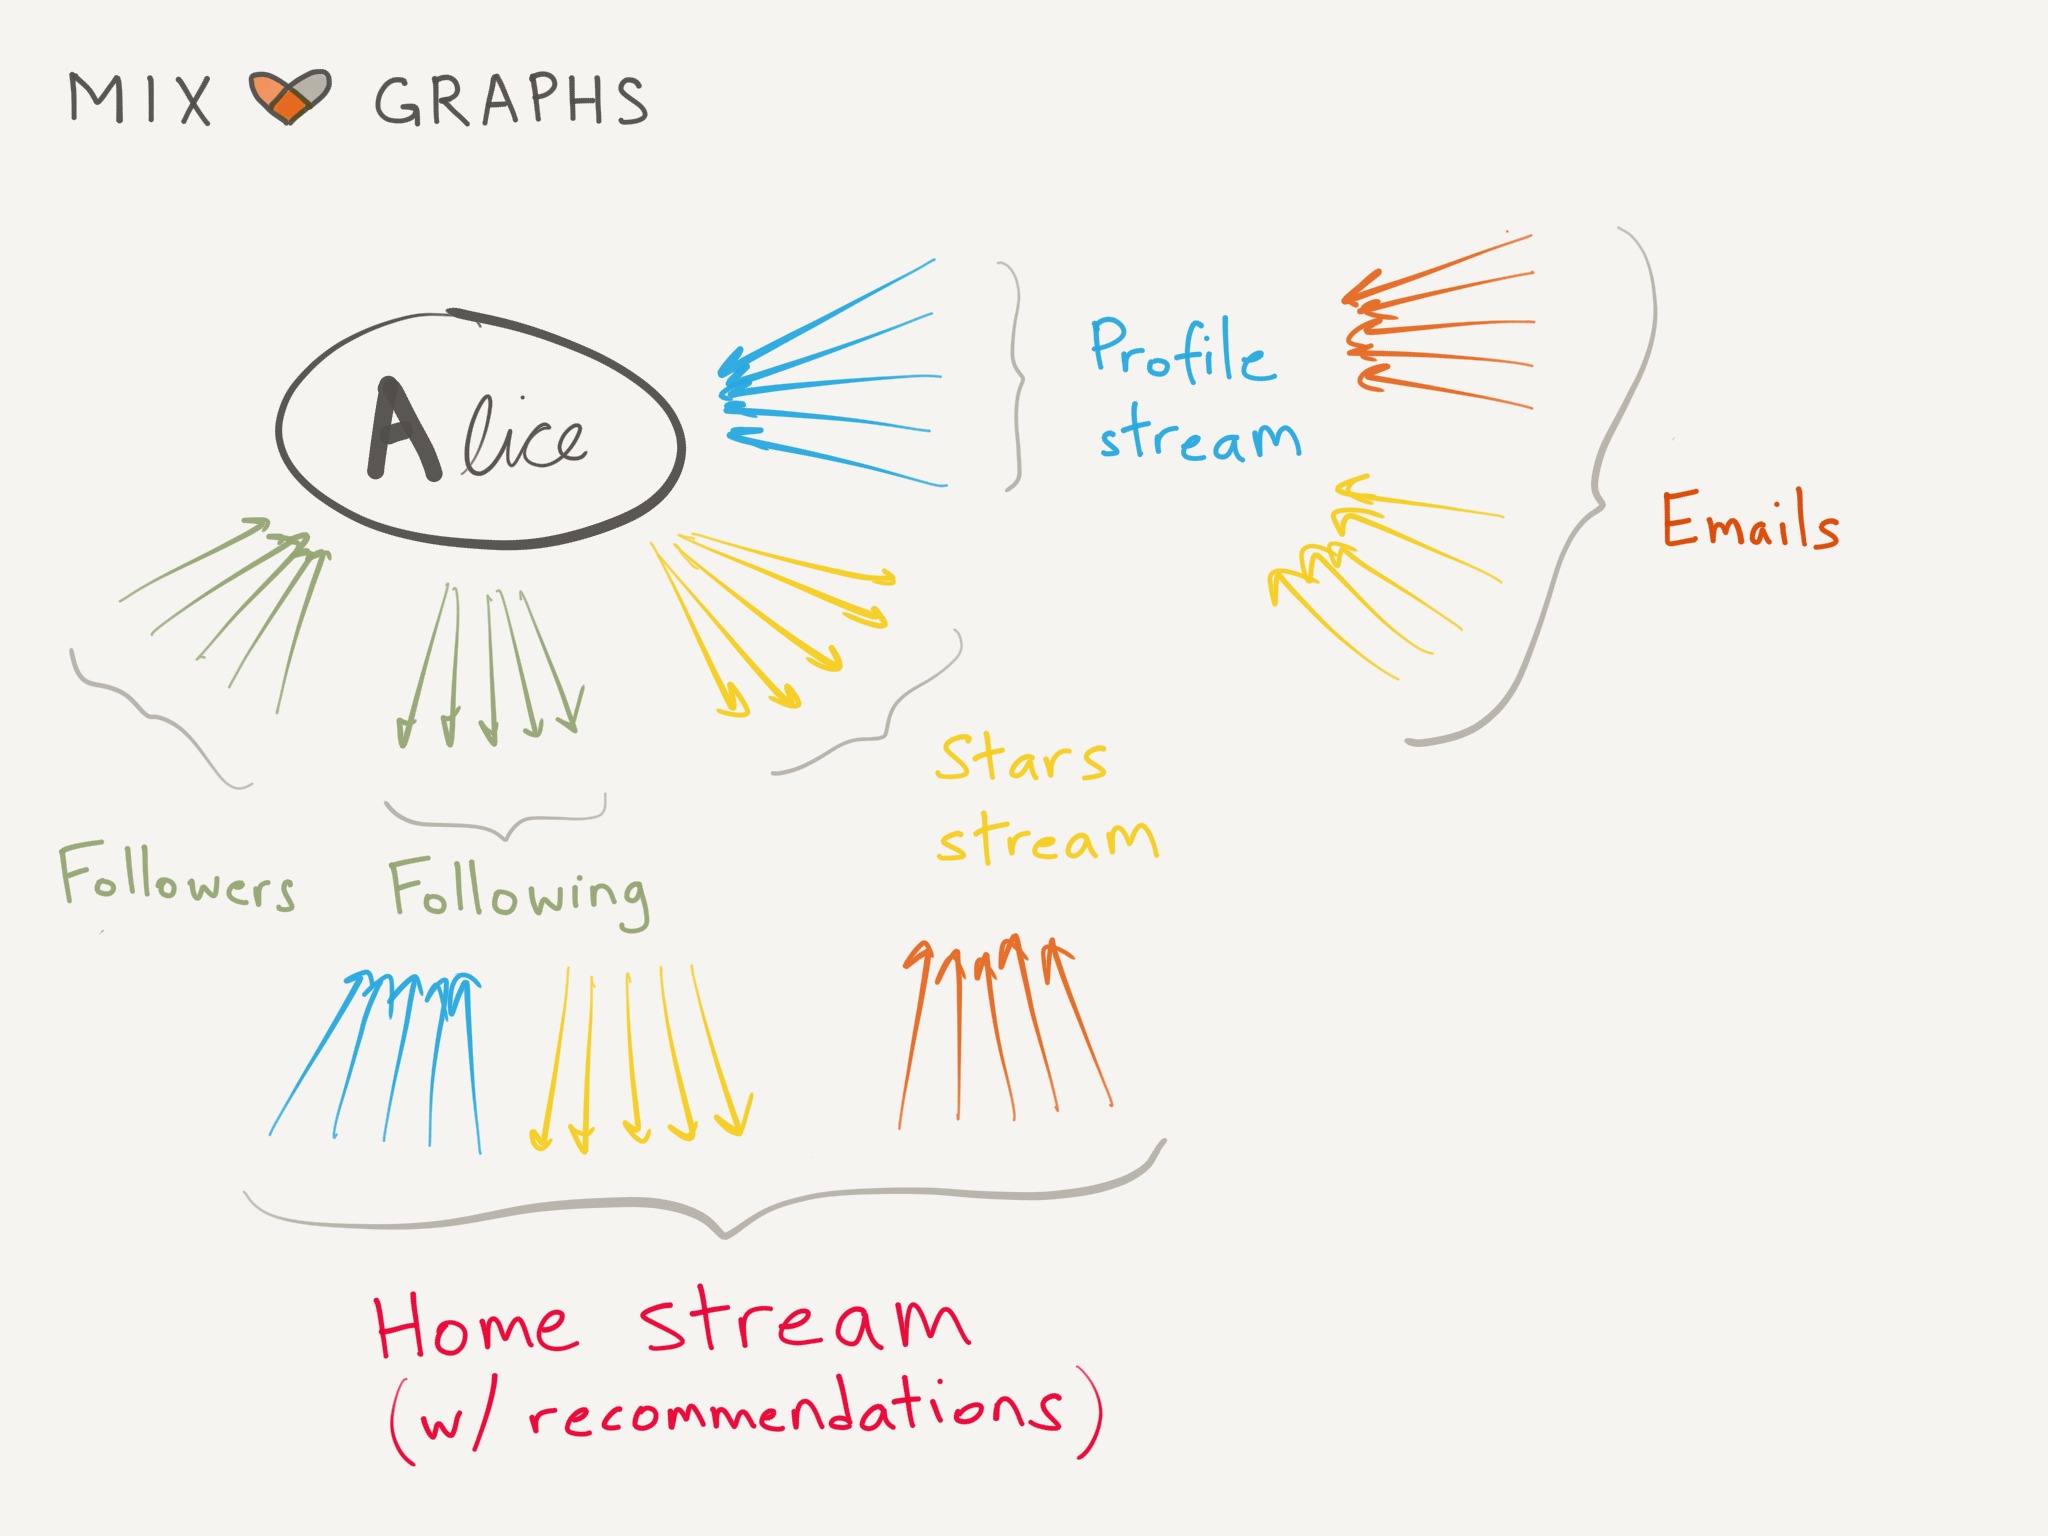 MIX GRAPHS
Alice
Profile
stream
Emails
Stars
stream
Followers
Following
Home stream
(w/ recommendations)